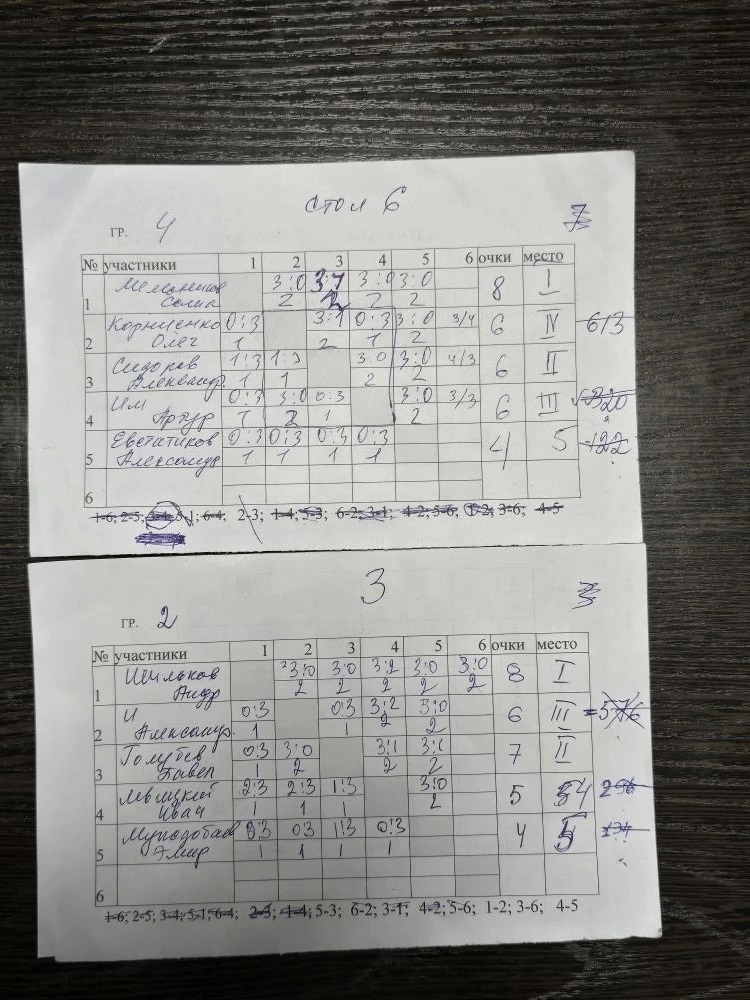 стол 6
гр. 4
№ участники 1 2 3 4 5 6 очки место
3:0 3:1 3:0 3:0
1 Солиа 2 2 2 2 8 I
Корниенко 0:3 3:1 0:3 3:0 3/4
2 Олег 1 2 1 2 6 IV 613
Сидоров 1:3 1:3 3:0 3:0 4/3
3 Александр 1 1 2 2 6 II
Им 0:3 3:0 0:3 3:0 3/3
4 Артур 1 2 1 2 6 III 320
Евстатиков 0:3 0:3 0:3 0:3
5 Александр 1 1 1 1 4 5 122
6
1-6; 2-5; 3-4; 5-1; 6-4; 2-3; 1-4; 5-3; 6-2; 3-1; 4-2; 5-6; 1-2; 3-6; 4-5
3
гр. 2
№ участники 1 2 3 4 5 6 очки место
Шильков 3:0 3:0 3:2 3:0 3:0
1 Андр 2 2 2 2 2 8 I
И 0:3 0:3 3:2 3:0
2 Александр 1 1 2 2 6 III
Голубев 0:3 3:0 3:1 3:1
3 Павел 1 2 2 2 7 II
2:3 2:3 1:3 3:0
4 Иван 1 1 1 2 5 4
0:3 0:3 1:3 0:3
5 Эмир 1 1 1 1 4 5
6
1-6; 2-5; 3-4; 5-1; 6-4; 2-3; 1-4; 5-3; 6-2; 3-1; 4-2; 5-6; 1-2; 3-6; 4-5